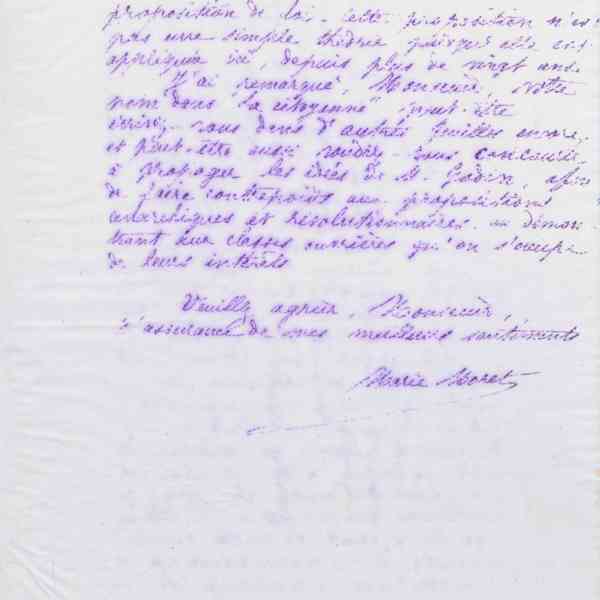 proposition de loi. Cette proposition n'est
pas une simple théorie puisqu'elle est
appliquée ici, depuis plus de vingt ans.
J'ai remarqué, Monsieur, votre
nom dans "La citoyenne" peut-être
écrivez-vous dans d'autres feuilles encore,
et peut-être aussi voudrez-vous concourir
à propager les idées de M. Godin, afin
de faire contrepoids aux propositions
anarchiques et révolutionnaires en démon-
trant aux classes ouvrières qu'on s'occupe
de leurs intérêts
Veuillez agréer, Monsieur,
l'assurance de mes meilleurs sentiments
Marie Moret